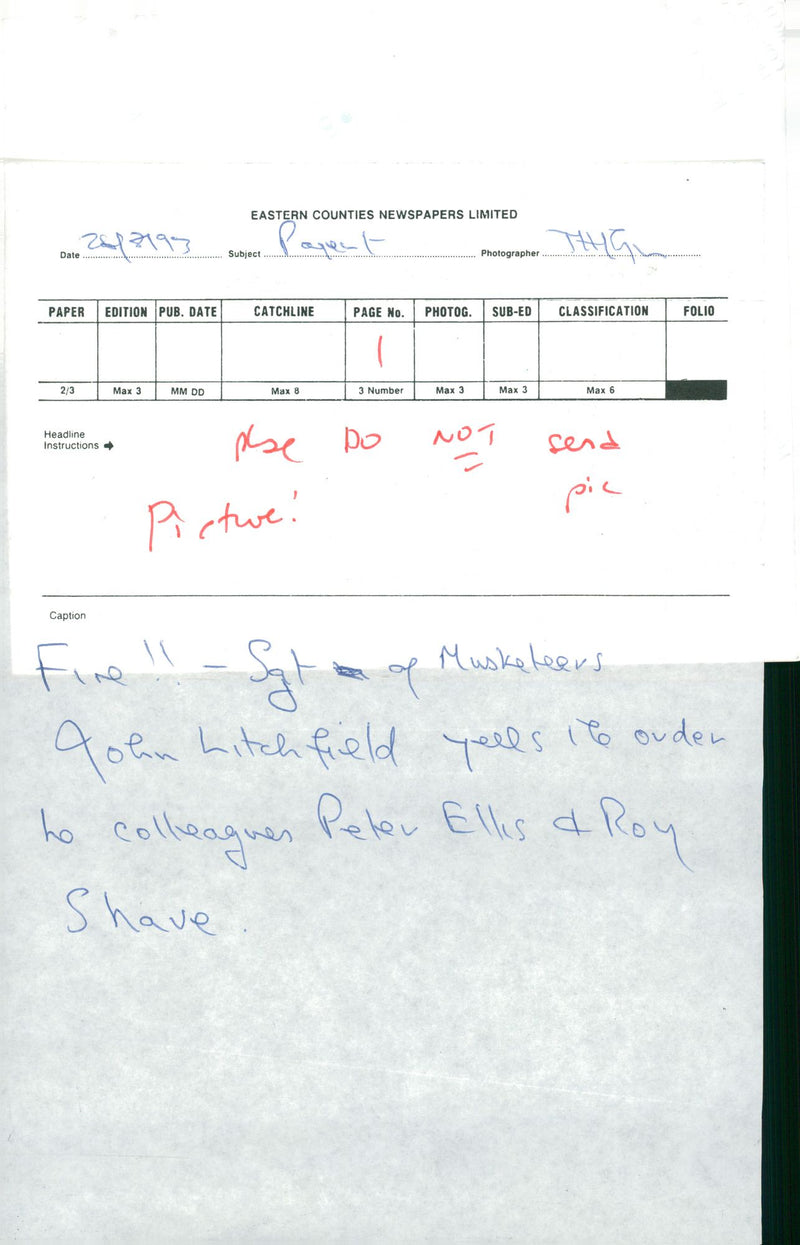 EASTERN COUNTIES NEWSPAPERS LIMITED
Date Subject Pagent Photographer
PAPER EDITION PUB. DATE CATCHLINE PAGE No. PHOTOG. SUB-ED CLASSIFICATION FOLIO
1
2/3 Max 3 MM DD Max 8 3 Number Max 3 Max 3 Max 6
Headline
Instructions
plse DO NOT send
pic
Picture!
Caption
Fire!! - Sgt of Musketeers
John Litchfield yells the order
to colleagues Peter Ellis & Roy
Shave.